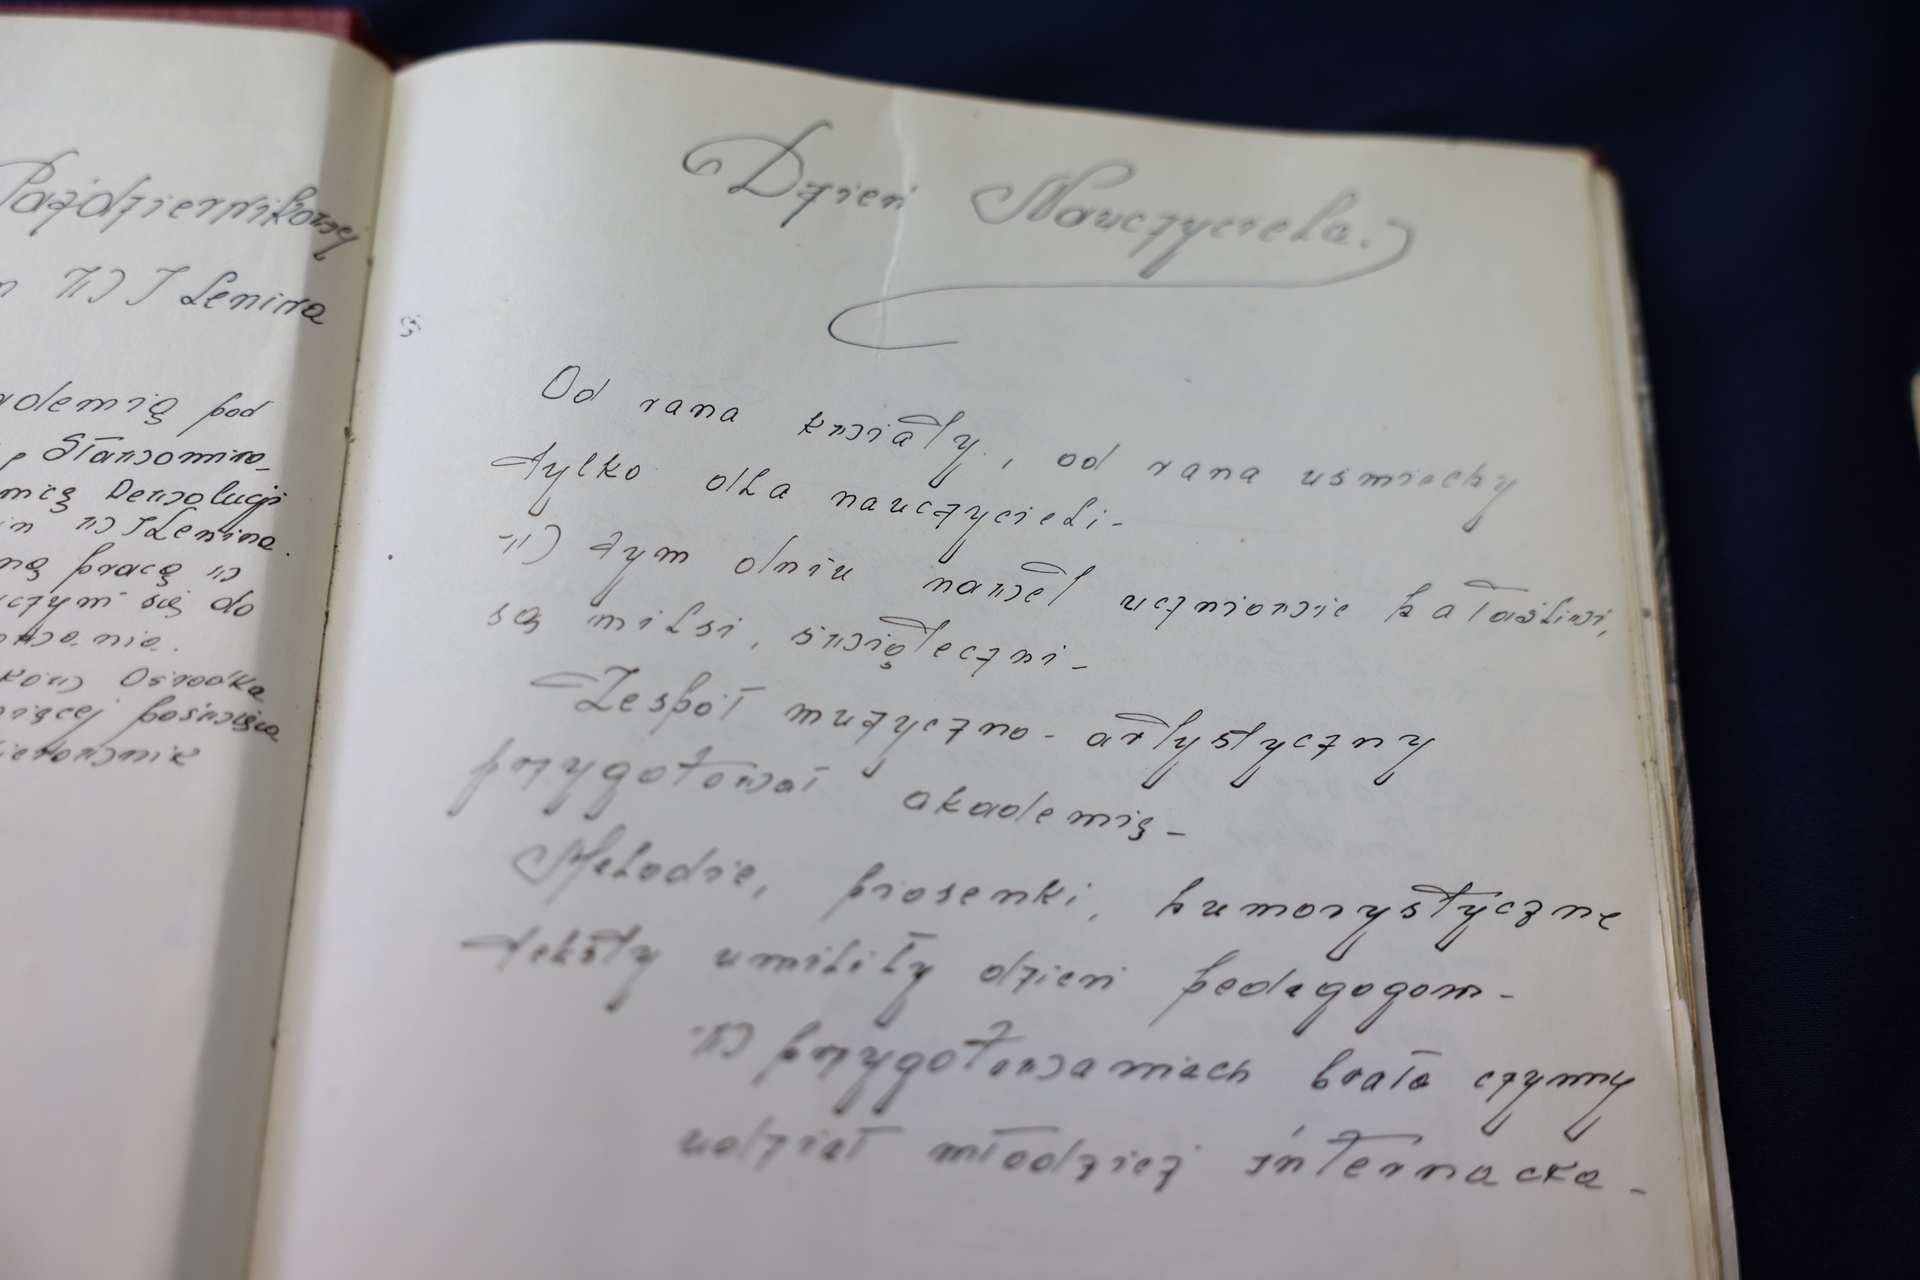 Październikowej
W I Lenina
pod
Stanowmira
Rewolucji
W I Lenina.
pracę w
się do
Ośrodka
Dzień Nauczyciela.
Od rana kwiaty, od rana uśmiechy
tylko dla nauczycieli-
W tym dniu nawet uczniowie hałaśliwi,
są milsi, świąteczni-
Zespół muzyczno-artystyczny
przygotował akademię-
Melodie, piosenki, humorystyczne
teksty umiliły dzień pedagogom-
W przygotowaniach brała czynny
udział młodzież internacka-